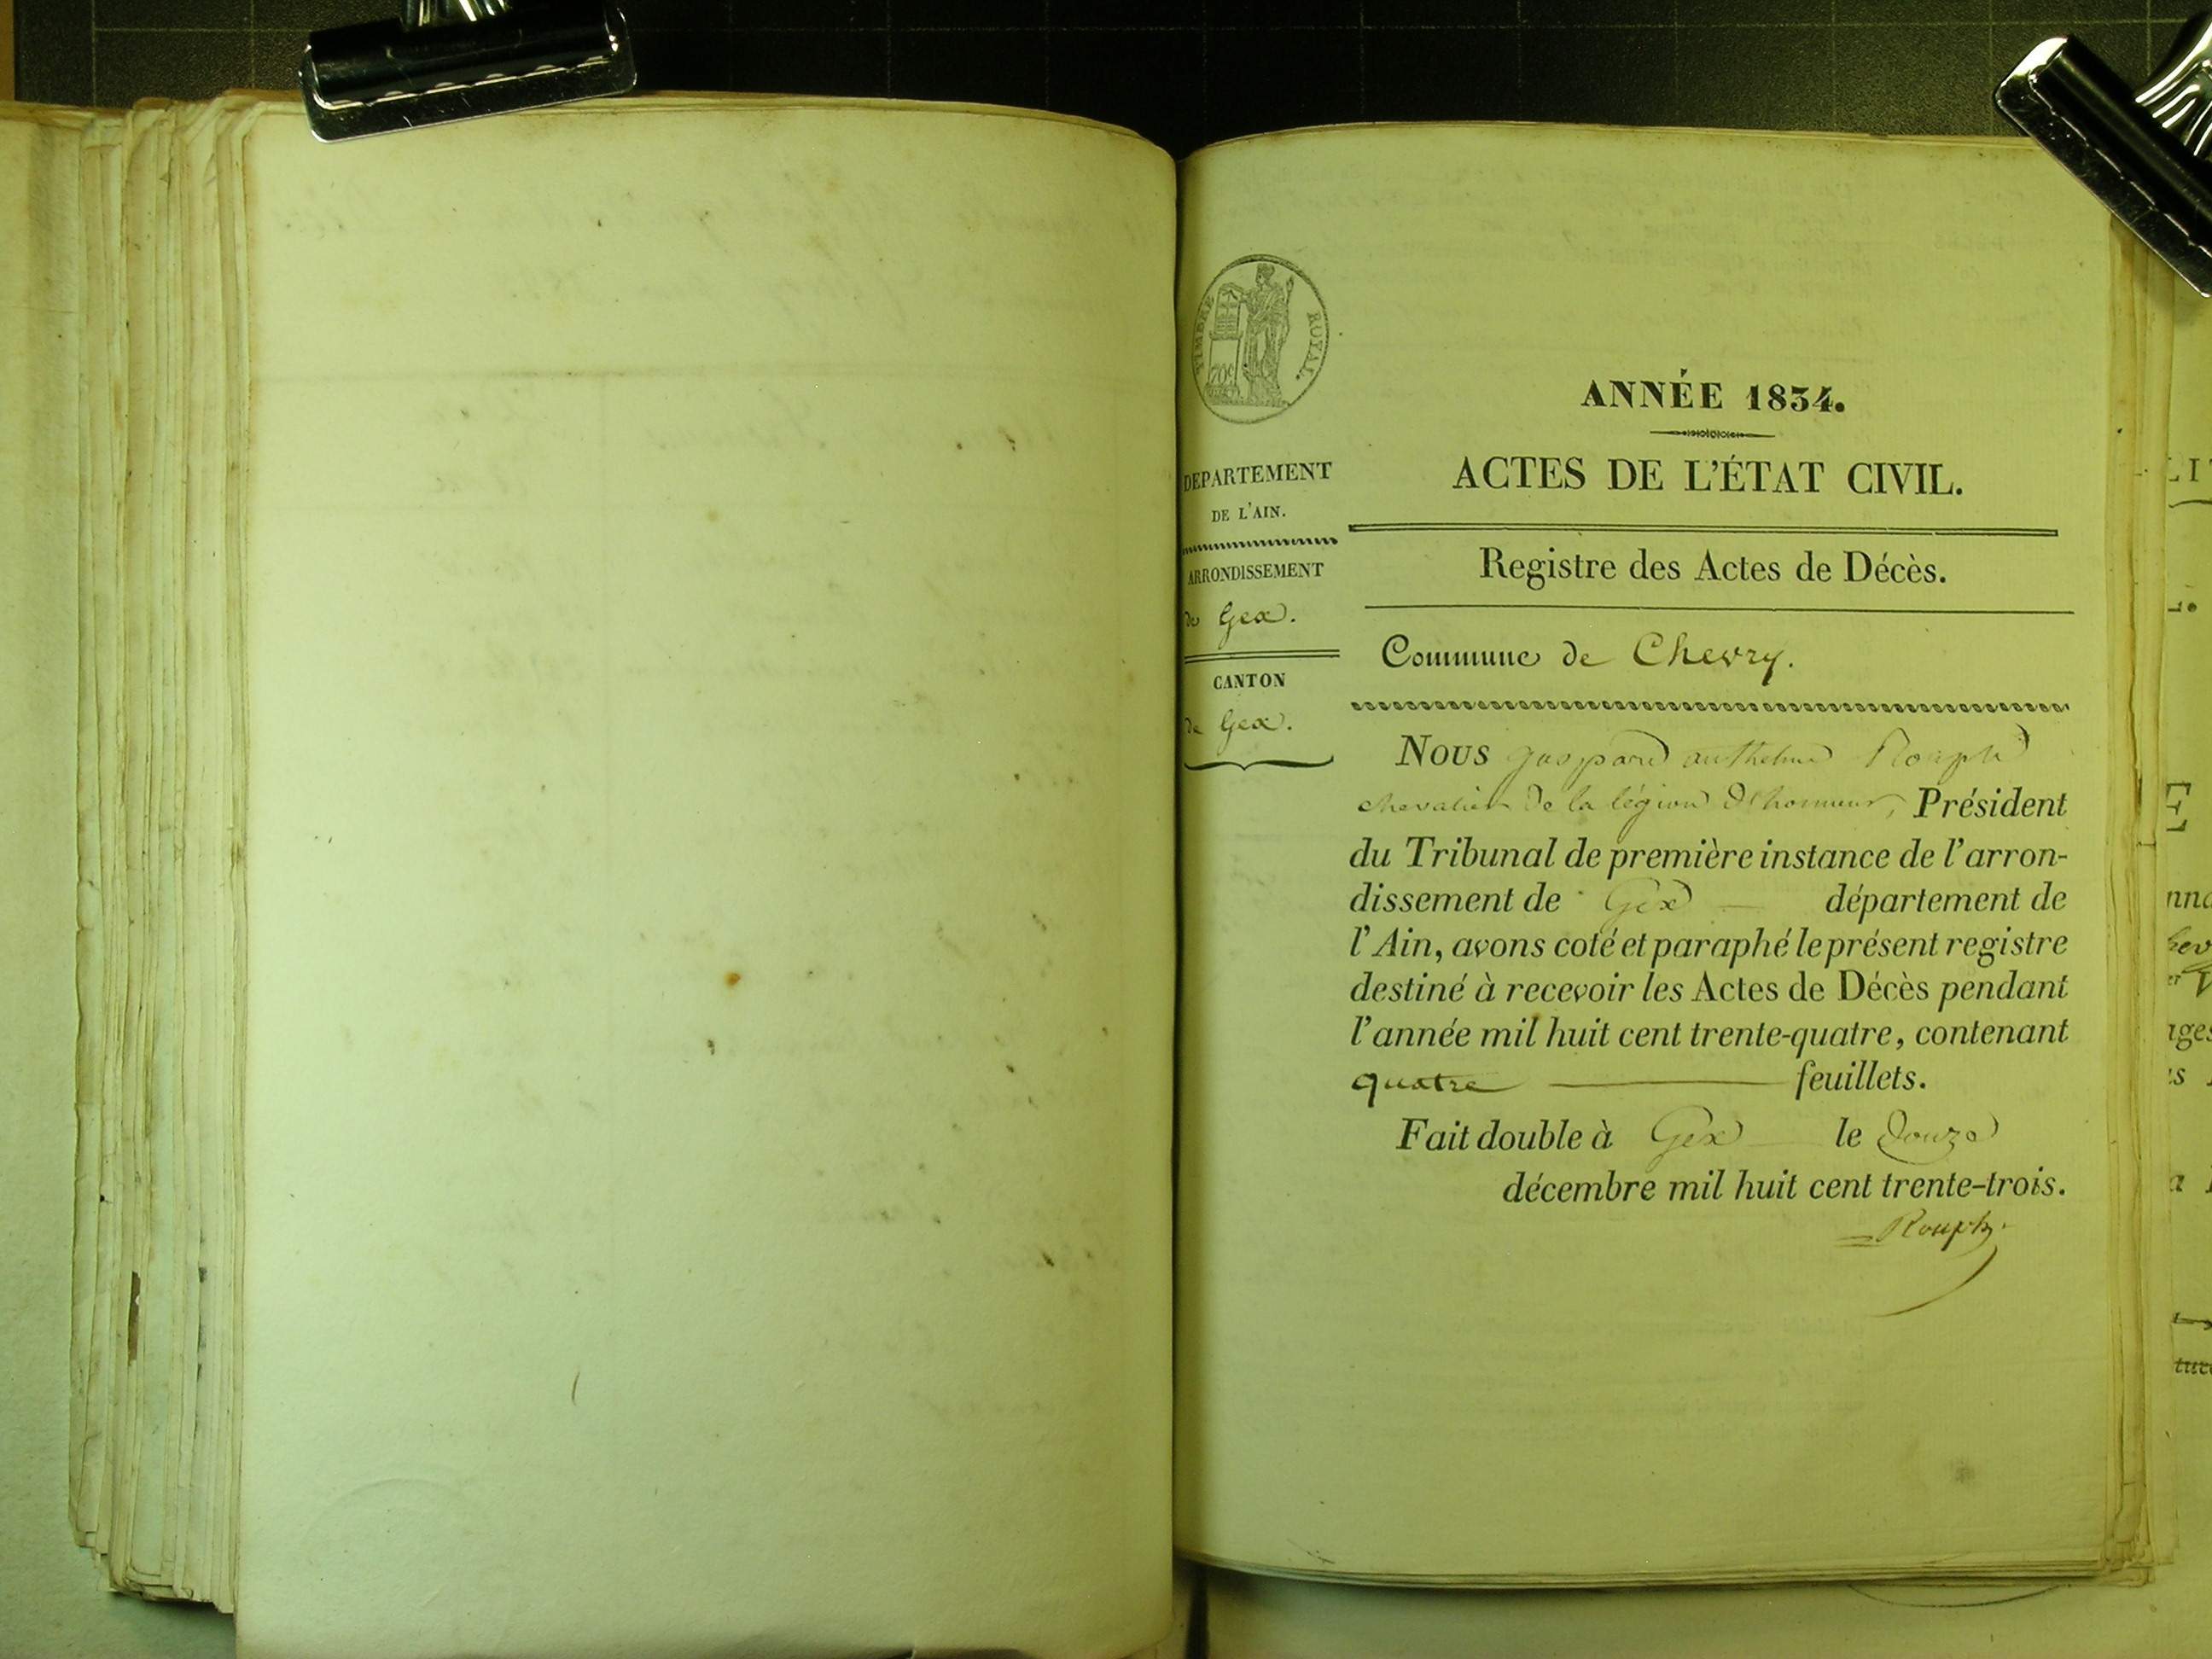 TIMBRE ROYAL.
70c
DEPARTEMENT
DE L'AIN.
ARRONDISSEMENT
de Gex.
CANTON
de Gex.
ANNÉE 1834.
ACTES DE L'ÉTAT CIVIL.
Registre des Actes de Décès.
Commune de Chevry.
Nous gaspard anthelme Rouph
chevalier de la légion d'honneur, Président
du Tribunal de première instance de l'arron-
dissement de Gex département de
l'Ain, avons coté et paraphé le présent registre
destiné à recevoir les Actes de Décès pendant
l'année mil huit cent trente-quatre, contenant
quatre feuillets.
Fait double à Gex le douze
décembre mil huit cent trente-trois.
Rouph